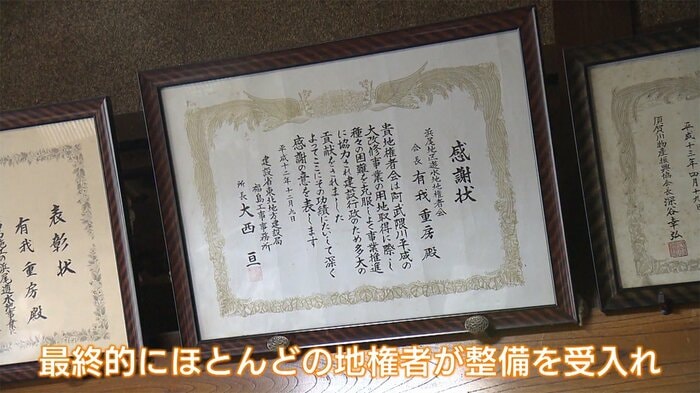 感謝状
浜尾地区遊水地地権者会
会長 有我重房殿
貴地権者会は阿武隈川平成の
大改修事業の用地取得に際し
種々の困難を克服しよく事業推進
に協力され建設行政のため多大の
貢献をされました
よってここにその功績にたいして深く
感謝の意を表します
平成十二年十二月六日
建設省東北地方建設局
福島工事事務所
所長 大西亘
表彰状
有我重房殿
平成十三年四月
須賀川物産振興協会長 深谷幸弘
最終的にほとんどの地権者が整備を受入れ